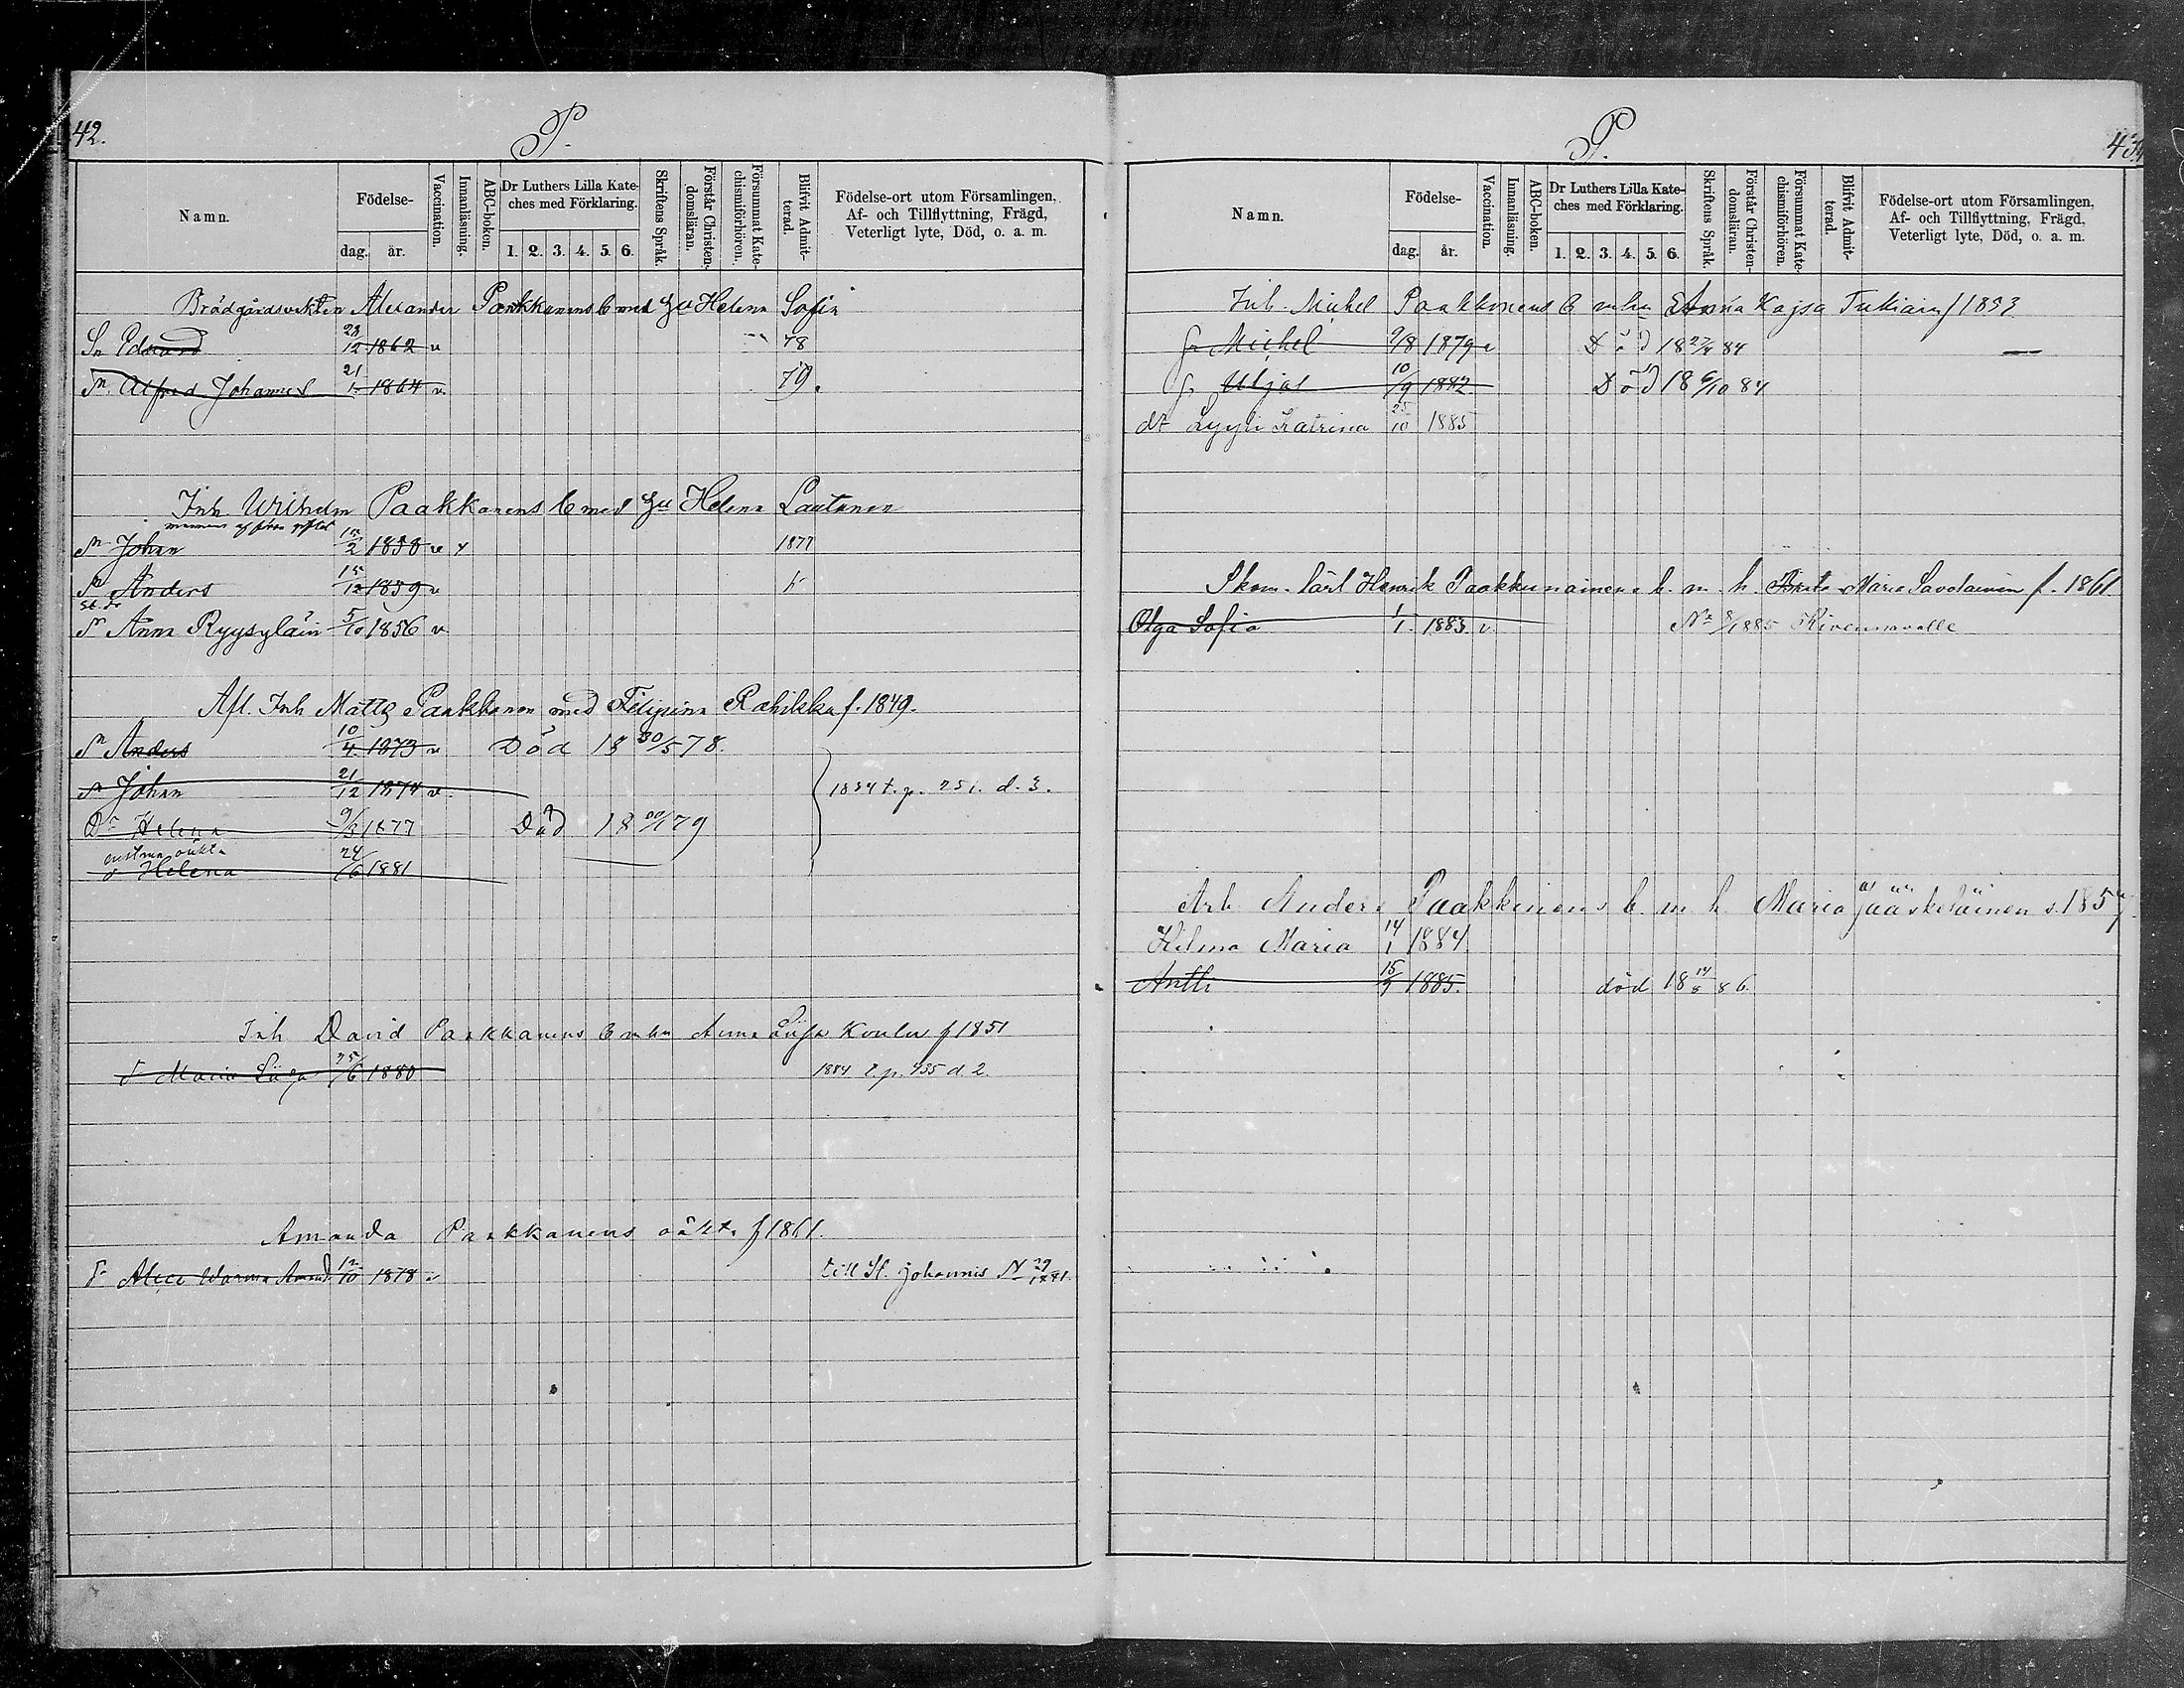 42.
P.
Namn.
Födelse-
dag.
år.
Vaccination.
Innanläsning.
ABC-boken.
Dr Luthers Lilla Kate-
ches med Förklaring.
1. 2. 3. 4. 5. 6.
Skriftens Språk.
Förstår Christen-
domsläran.
Försummat Kate-
chismiförhören.
Blifvit Admit-
terad.
Födelse-ort utom Församlingen,
Af- och Tillflyttning, Frägd,
Veterligt lyte, Död, o. a. m.
Alexander Paakkanens b med Helena Sofia
Sn Edvard 12 1862 v 78
Sn Alfred Johannes 21/1 1864 v 79.
Inh. Wilhelm Paakkanens b med Helena Lautanen
Sn Johan 2 1858 v 1877
Sn Anders 15/12 1859 v
Anna Ryysyläin 5/10 1856 v
Afl. Inh Matts Paakkanen med Filipina Rahikka f. 1849.
Sn Anders 10/4 1873 v Död 18 30/5 78.
Sn Johan 21/12 1874 v
1884 t. p. 251. d. 3.
Dr Helena 9/3 1877 Död 18 79
enstaka oäkta
d Helena 24/6 1881
Inh David Paakkanens b Anna Liisa f 1851
d Maria Liisa 25/6 1880 1884 t. p. 435 d 2.
Amanda Paakkanens oäkta f 1861.
d Alice 12/10 1878 v till St. Johannis N 29 1881.
P.
43.
Namn.
Födelse-
dag.
år.
Vaccination.
Innanläsning.
ABC-boken.
Dr Luthers Lilla Kate-
ches med Förklaring.
1. 2. 3. 4. 5. 6.
Skriftens Språk.
Förstår Christen-
domsläran.
Försummat Kate-
chismiförhören.
Blifvit Admit-
terad.
Födelse-ort utom Församlingen,
Af- och Tillflyttning, Frägd,
Veterligt lyte, Död, o. a. m.
Inh. Michel Paakkonens b Anna Kajsa f 1853
Michel 9/8 1879 v Död 18 27/4 84
Uljas 10/9 1882 Död 18 6/10 84
dt Lyyli Katrina 25/10 1885
Henrik Paakkunainens b. m. h. Maria Savolainen f. 1861
Olga Sofia 1/1. 1883. v. No 8/1885 Kivennavalle
Arb. Anders Paakkinens b. m. h. Maria Jääskeläinen s. 1857.
Hilma Maria 14/1 1884
Antti 15/9 1885. död 18 14/8 86.